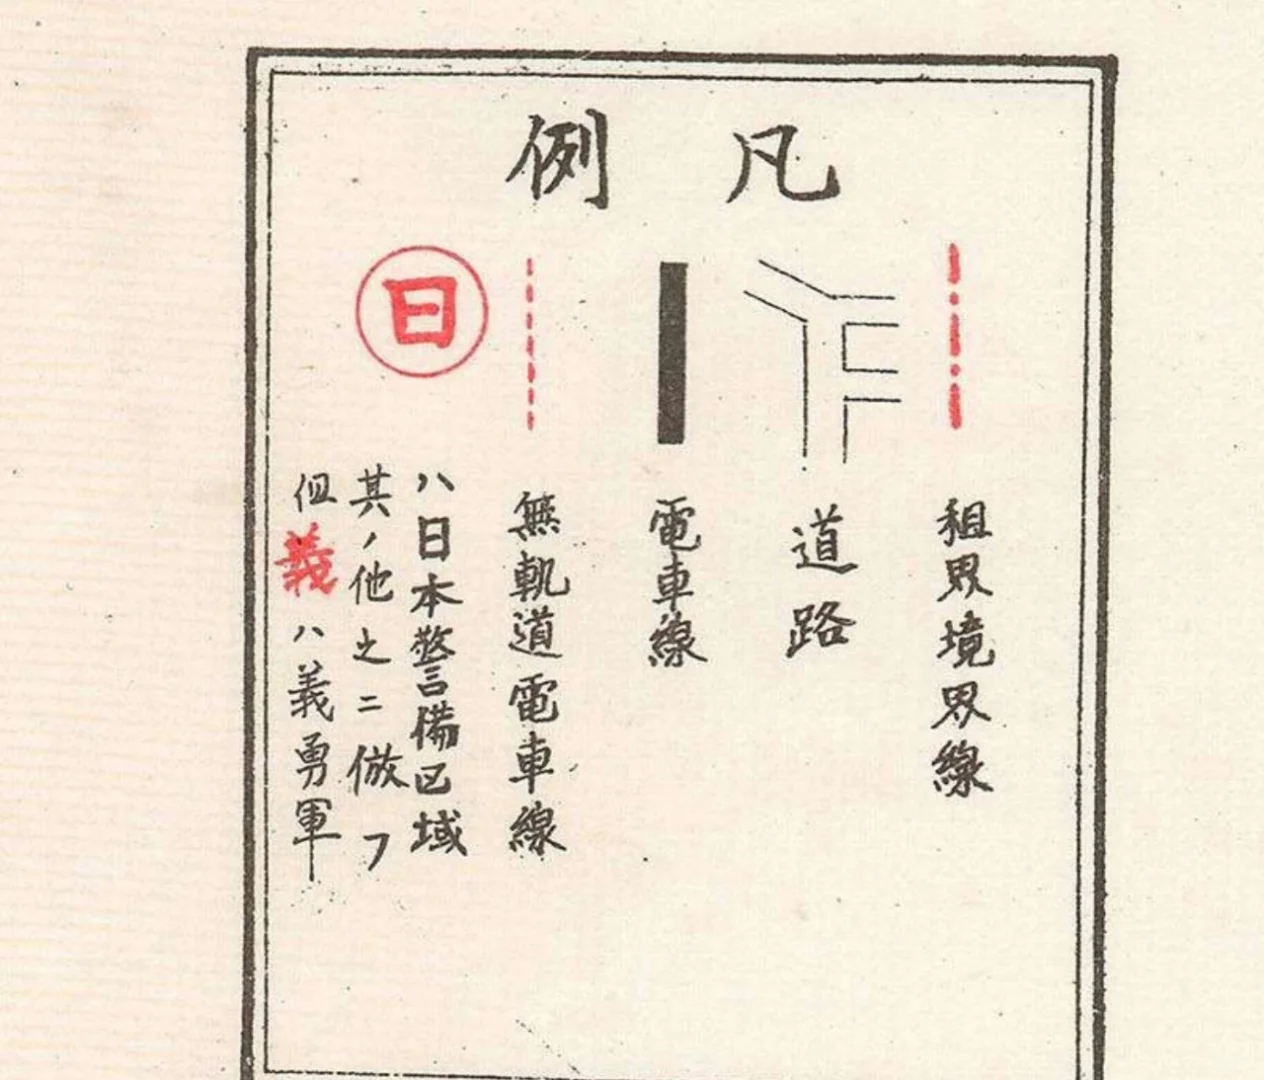 凡例
租界境界線
道路
電車線
無軌道電車線
日
ハ日本警備区域
其ノ他之ニ倣フ
但義ハ義勇軍